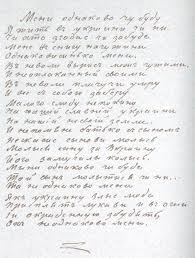 Мени однаково чи буду
Я жить в украини чи ни.
Чи хто згадае чи забуде
Мене в снигу на чужини
Однаковисинько мени.
В неволи вырис меж чужими,
И неоплаканый своими
В неволи плачучи умру
И все з собою заберу
Малого слиду непокину
На нашій славній украини
На нашій несвоій земли.
И непомяне батько з сыном
Нескаже сынови молысь
Молысь сыну за Вкраину
Його замучили колысь.
Мени однаково чи буде
Той сын молитися чи ни...
Та не однаково мени
Як украину злии люде
Присплять лукави и в огни
Ии окраденую збудять..
Ох не однаково мени.